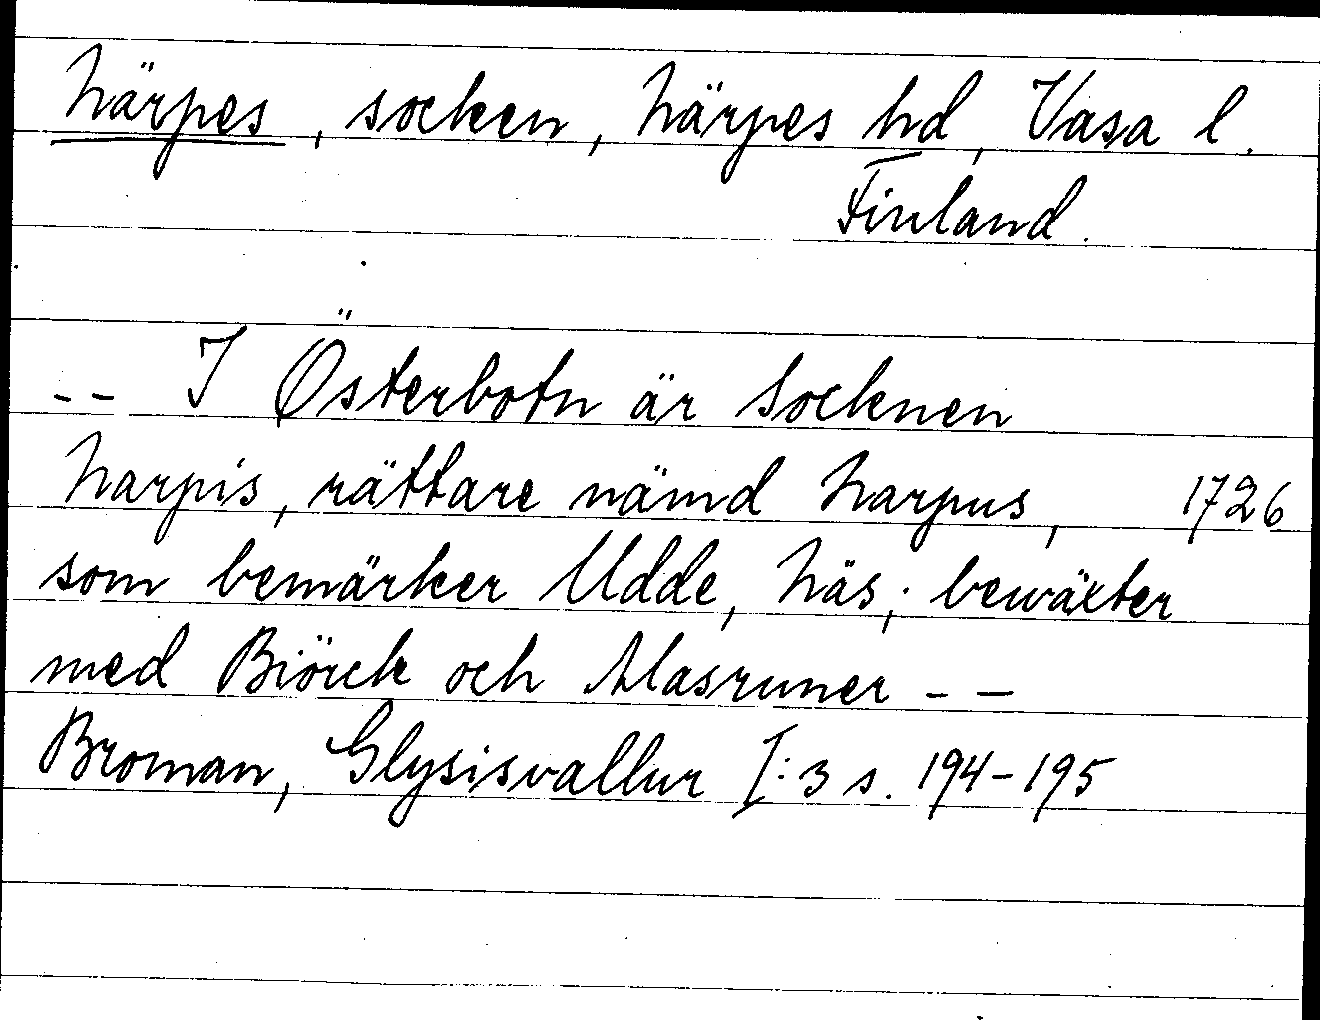 Närpes, socken, Närpes hd, Vasa l.
Finland.
-- I Österbotn är Socknen
Narpis, rättare nämd Narpus, 1726
som bemärker Udde, Näs; bewäxter
med Biörck och Masruner --
Broman, Glysisvallur I:3 s. 194-195